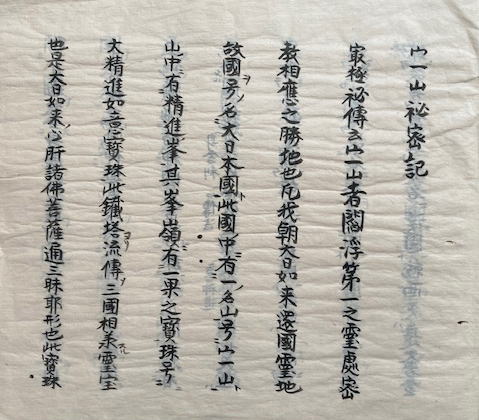 宀一山祕密記
㝡極祕傳云宀一山者閻浮第一之靈處密
教相應之勝地也凡我朝大日如来還國靈地
故國号名大日本國此國中有一名山号宀一山
山中有精進峯其峯嶺有一果之寶珠号
大精進如意寶珠此鐵塔流傳三國相承靈宝
也是大日如来心肝諸佛菩薩通三昧耶形也此寶珠